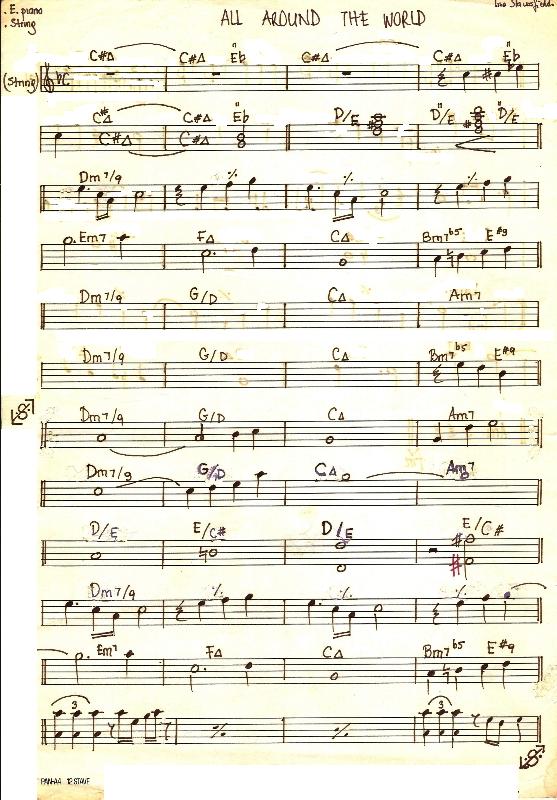 . E. piano
. String
ALL AROUND THE WORLD
Lisa Stansfield
(String) C#Δ C#Δ Eb C#Δ C#Δ Eb
C#Δ C#Δ Eb D/E D/E D/E
C#Δ C#Δ
Dm7/9
Em7 FΔ CΔ Bm7b5 E#9
Dm7/9 G/D CΔ Am7
Dm7/9 G/D CΔ Bm7b5 E#9
Dm7/9 G/D CΔ Am7
Dm7/9 G/D CΔ Am7
D/E E/C# D/E E/C#
Dm7/9
Em7 FΔ CΔ Bm7b5 E#9
3 3
PANAA 12 STAVE